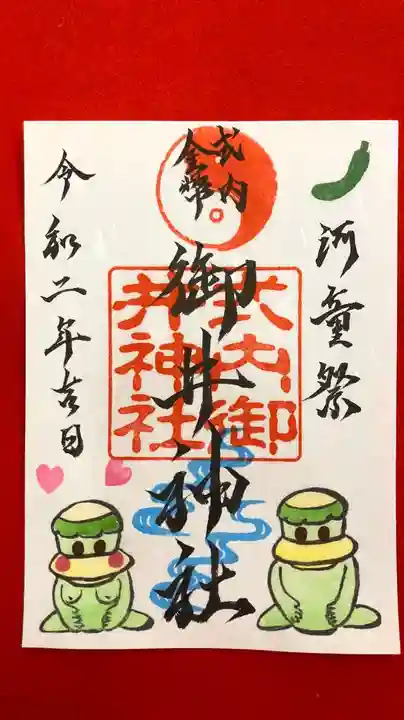 河童祭
式内
金幣
御井神社
式内御井神社
令和二年吉日